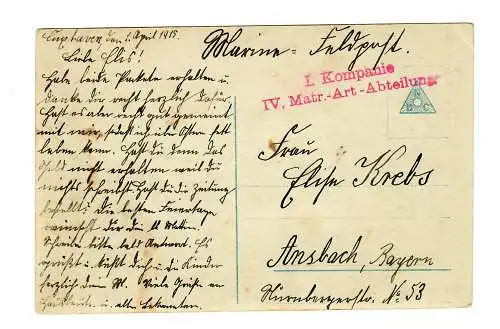 Cuxhaven, den 1. April 1915.
Liebe Elis!
Habe beide Pakete erhalten u.
danke dir recht herzlich dafür,
hast es aber recht gut gemeint
mit mir, ich über Ostern fett
leben kann. Hast du denn das
Geld nicht erhalten weil du
nichts schreibst. Hast du die Zeitung
bestellt? die besten Feiertage
wünscht dir dein
Schreibe bitte bald Antwort. Es
grüßt u. küßt dich u. die Kinder
herzlich dein M. Viele Grüße an
u. alle Bekannten.
Marine-Feldpost.
I. Kompanie
IV, Matr.-Art-Abteilung.
Frau
Elise Krebs
Ansbach, Bayern
Nürnbergerstr. No 53